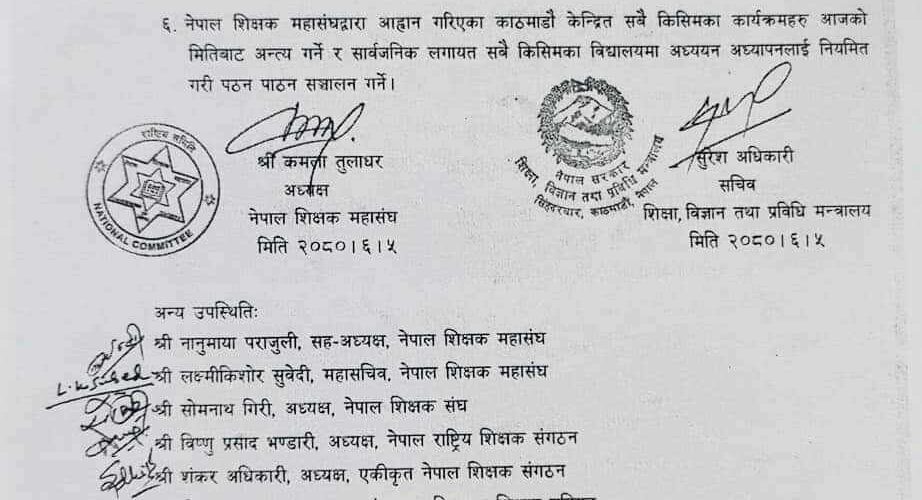 ६. नेपाल शिक्षक महासंघद्वारा आह्वान गरिएका काठमाडौं केन्द्रित सबै किसिमका कार्यक्रमहरु आजको
मितिबाट अन्त्य गर्ने र सार्वजनिक लगायत सबै किसिमका विद्यालयमा अध्ययन अध्यापनलाई नियमित
गरी पठन पाठन सञ्चालन गर्ने।
राष्ट्रिय समिति
NATIONAL COMMITTEE
श्री कमला तुलाधर
अध्यक्ष
नेपाल शिक्षक महासंघ
मिति २०८०।६।५
नेपाल सरकार
शिक्षा, विज्ञान तथा प्रविधि मन्त्रालय
सिंहदरबार, काठमाडौं, नेपाल
सुरेश अधिकारी
सचिव
शिक्षा, विज्ञान तथा प्रविधि मन्त्रालय
मिति २०८०।६।५
अन्य उपस्थितिः
श्री नानुमाया पराजुली, सह-अध्यक्ष, नेपाल शिक्षक महासंघ
श्री लक्ष्मीकिशोर सुवेदी, महासचिव, नेपाल शिक्षक महासंघ
श्री सोमनाथ गिरी, अध्यक्ष, नेपाल शिक्षक संघ
श्री विष्णु प्रसाद भण्डारी, अध्यक्ष, नेपाल राष्ट्रिय शिक्षक संगठन
श्री शंकर अधिकारी, अध्यक्ष, एकीकृत नेपाल शिक्षक संगठन